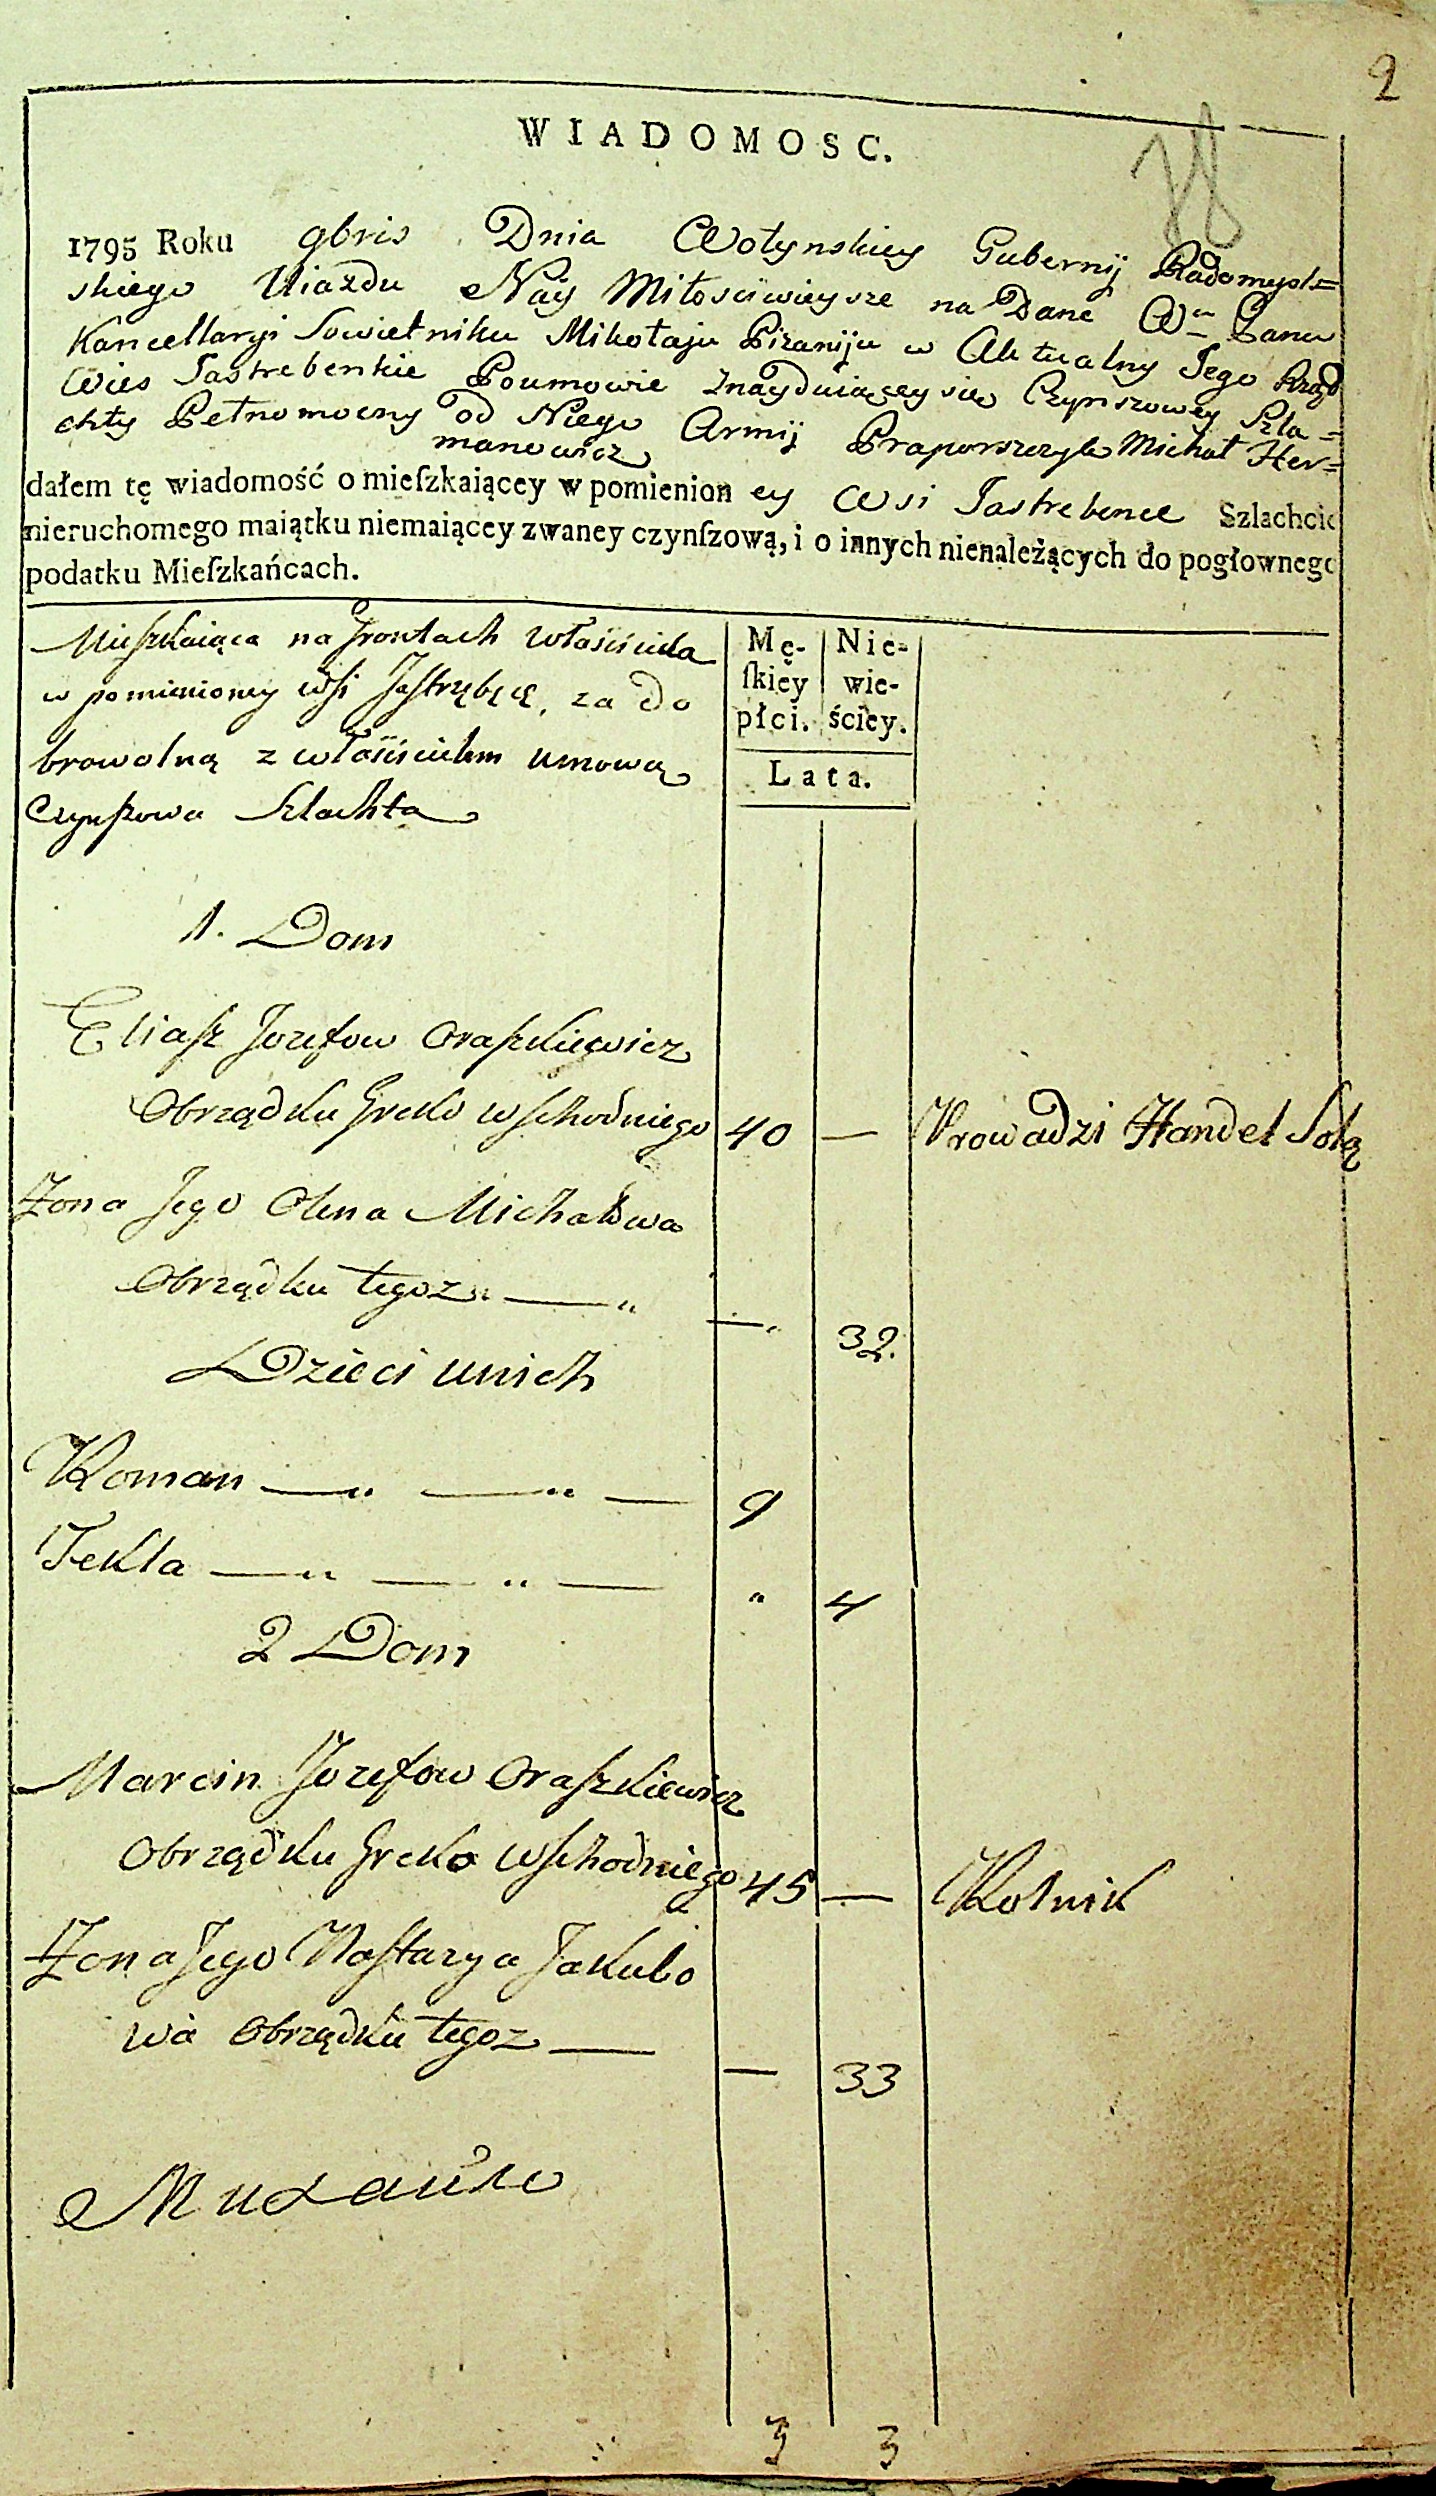 2
WIADOMOSC.
1795 Roku 9bris Dnia Wołynskiey Gubernij Radomysl=
skiego Uiazdu Nay Miłosciwieysze na Dane Wu Panu
Kancellaryi Sowietniku Mikołaju Piraniju w Aktualny Jego Rząd
Wies Jastrebenkie Poumowie Znayduiącey sie Czynszowey Szla=
chty Pełnomocny od Niego Armij Praporszczyk Michał Her=
manowicz
dałem tę wiadomość o mieſzkaiącey w pomienion ey Wsi Jastrebence Szlachcie
nieruchomego maiątku niemaiącey zwaney czynſzową, i o innych nienależących do pogłownego
podatku Mieſzkańcach.
Mieſzkaiąca na Grontach właściciela
w pomienioney wſi Jaſtrębce, za do
browolną z właścicielem umową
Czynſzowa Szlachta
Mę-
ſkiey
płci.
Nie-
wie-
ściey.
Lata.
1. Dom
Eliaſz Jozefow Oraſzkiewicz
Obrządku Greko wſchodniego 40 — Prowadzi Handel Solą
Żona Jego Olena Michałowa
Obrządku tegoz — — 32.
Dzieci unich
Roman — — — 9
Tekla — — — " 4
2 Dom
Marcin Jozefow Oraſzkiewicz
Obrządku Greko Wſchodniego 45 — Rolnik
Żona Jego Naſtazya Jakubo
wa Obrządku tegoz — — 33
3 3